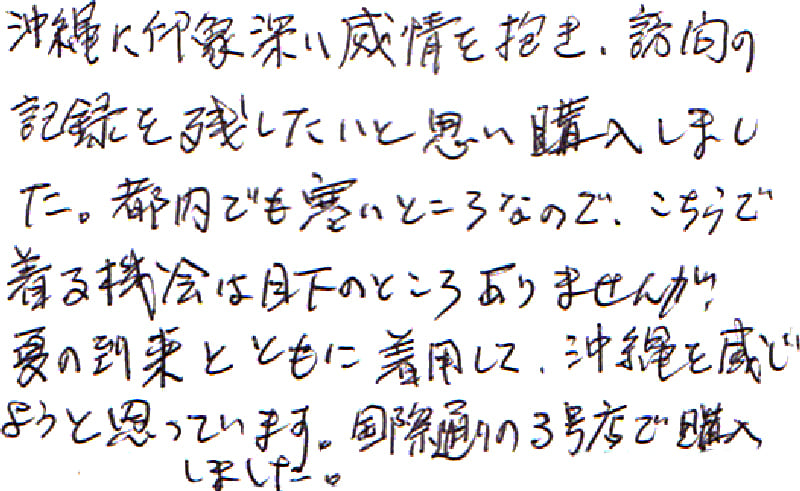 沖縄に印象深い感情を抱き、訪問の
記録を残したいと思い購入しまし
た。都内でも寒いところなので、こちらで
着る機会は目下のところありませんが、
夏の到来とともに着用して、沖縄を感じ
ようと思っています。国際通りの3号店で購入
しました。